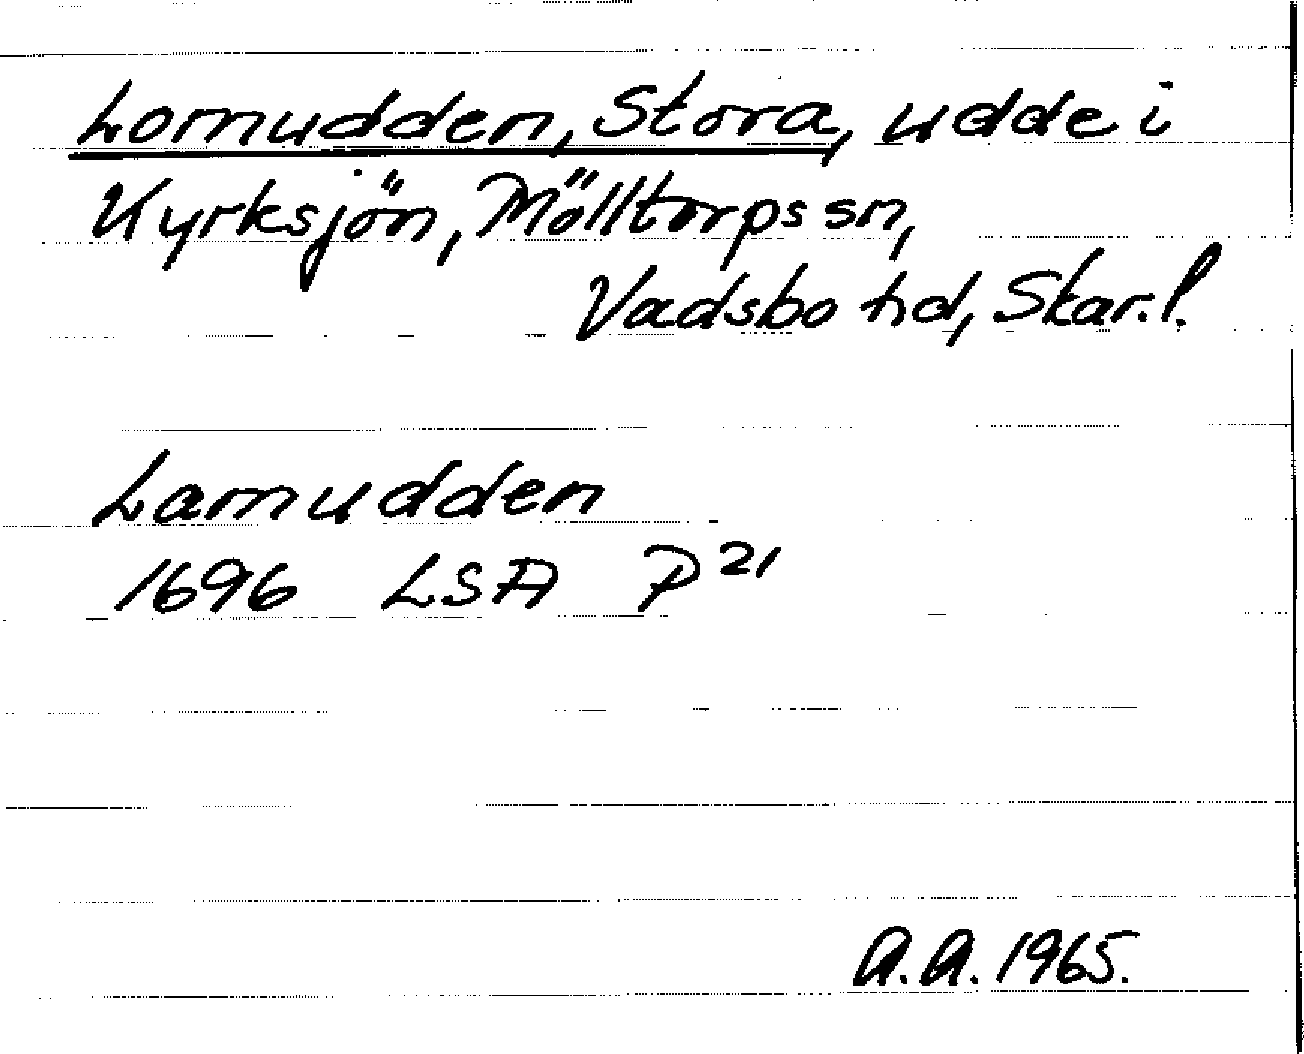 Lomudden, Stora, udde i
Kyrksjön, Mölltorps sn,
Vadsbo hd, Skar. l.
Lamudden
1696 LSA P 21
A.A. 1965.